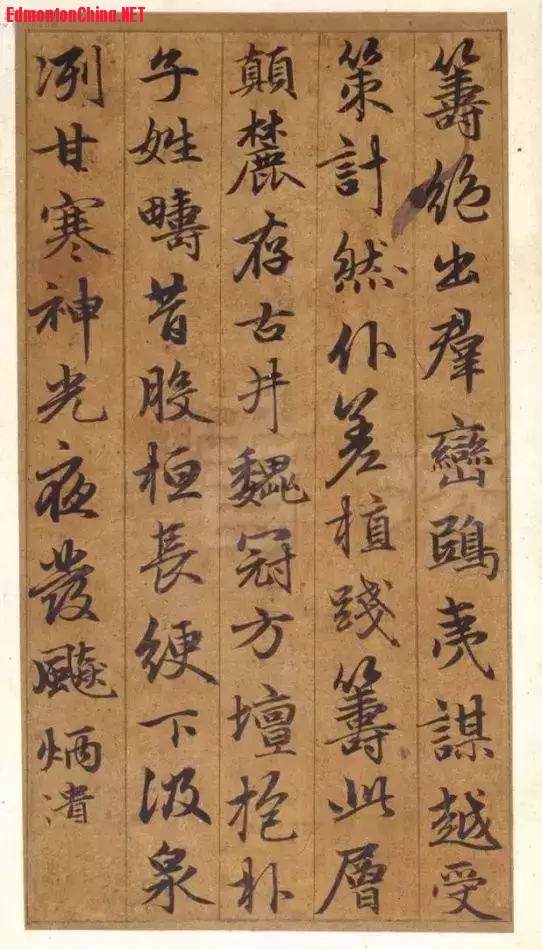 EdmontonChina.NET
籌絶出羣巒鴟夷謀越受
策計然仆差植踐籌此層
顛麓存古井魏冠方壇抱朴
子姓疇昔股桓長綆下汲泉
冽甘寒神光夜發飈炳潰